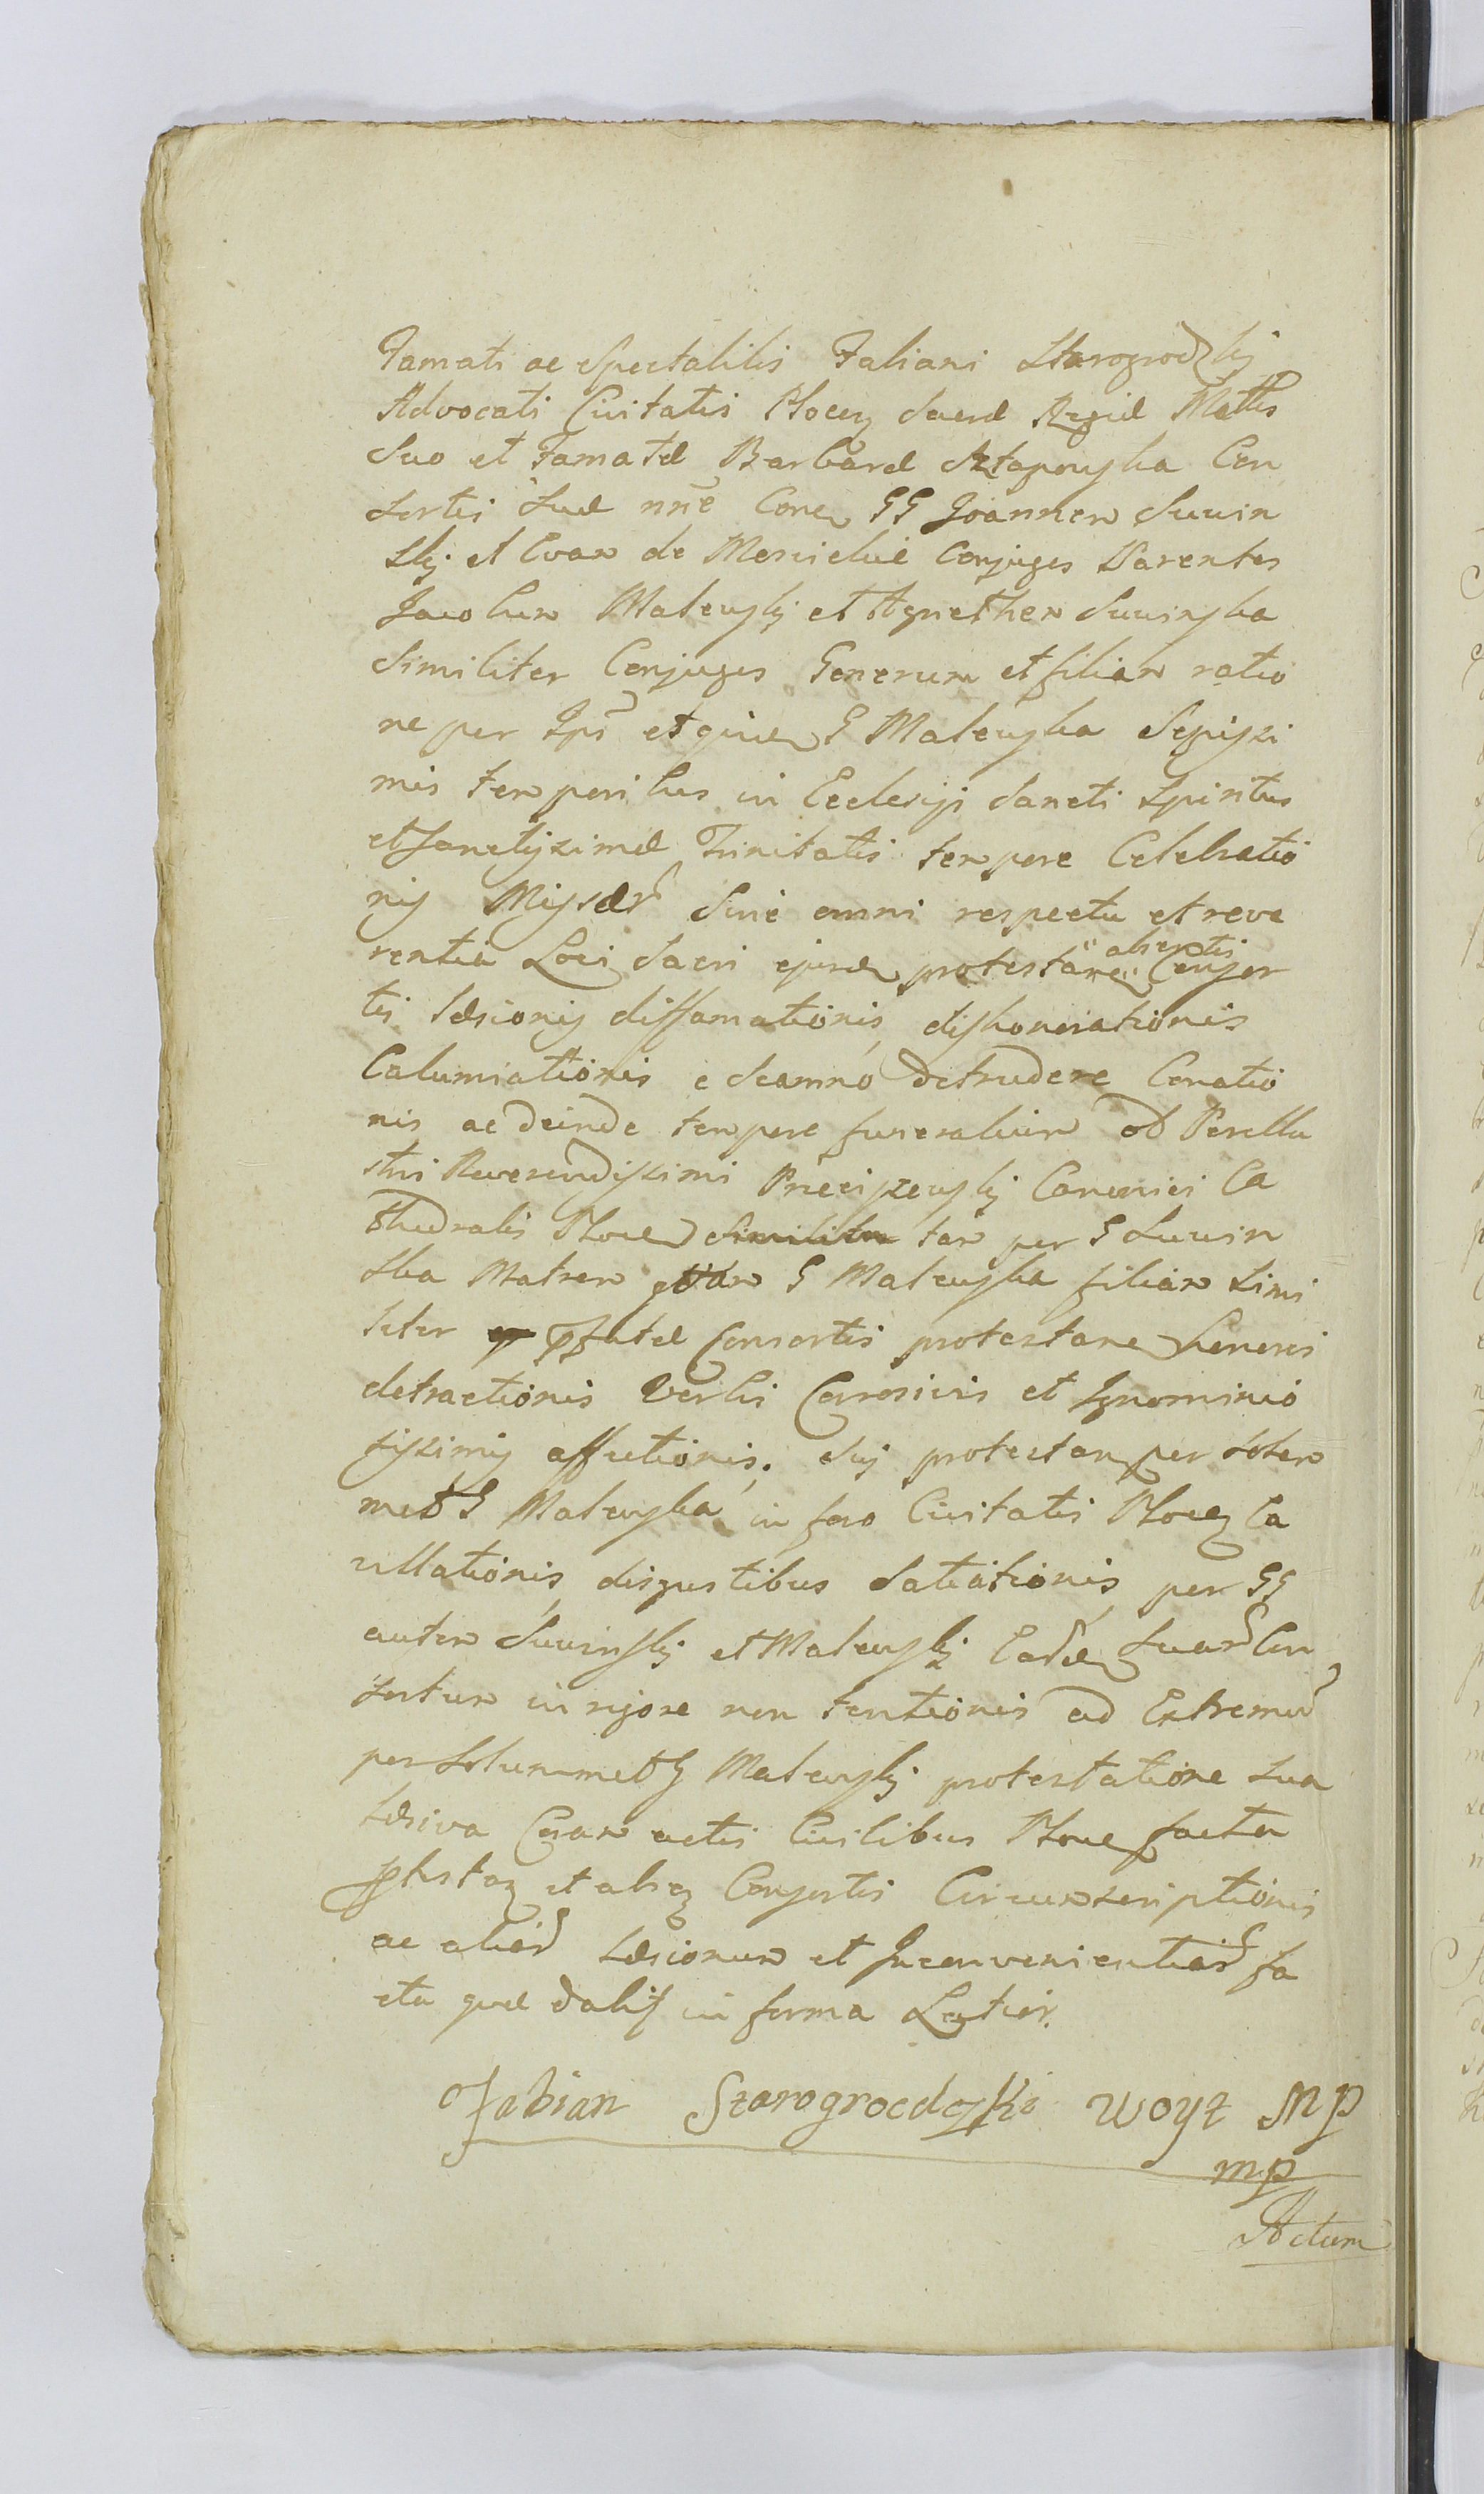 Famati ac Spectabilis Fabiani Starogrodzkij
Advocati Civitatis Plocen Sacræ Regiæ Mattis
Suo et Famatæ Barbaræ Con
sortis Suæ nne Contra GG Joannem Suwin
skij et Evam de Conjuges Parentes
Jacobum Mateuskij et Agnethem Suwinska
Similiter Conjuges Generum et filiam ratio
ne per Ips G Mateuska Sepissi
mis temporibus in Ecclesijs Sancti Spiritus
et Sanctissimæ Trinitatis tempore Celebratio
nis Missar Sine omni respectu et reve
rentia Loci Sacri ejusd protestan absentis Consor
tis læsionis diffamationis, dishonorationis
Calumiationis e Scamno detrudere Conatio
nis ac deinde tempore funeralium od Perillu
stri Reverendissimi Canonici Ca
thedralis Ploce Similiter tam per G Suwin
ska Matrem qvam G Mateuska filiam Simi
liter pfatæ Consortis protestan honoris
detractionis Verbis Corrosivis et Ignominio
sissimis affectionis. Suj protestan per Solam
met G Mateuska in foro Civitatis Plocen Ca
villationis, disgustibus Satiationis, per GG
autem Suwinskij et Mateuskij Suar Con
sortum in rigore non tentionis ad Extremum
per Solummet G Mateuskij protestatione Sua
læsiva Coram actis Civilibus Ploce facta
et absen Consortis Circumscriptionis
ac aliar læsionum et Inconvenientiar fa
cta quæ dabit in forma Latior.
Fabian Starogrodzki woyt Mp
mp
Actum